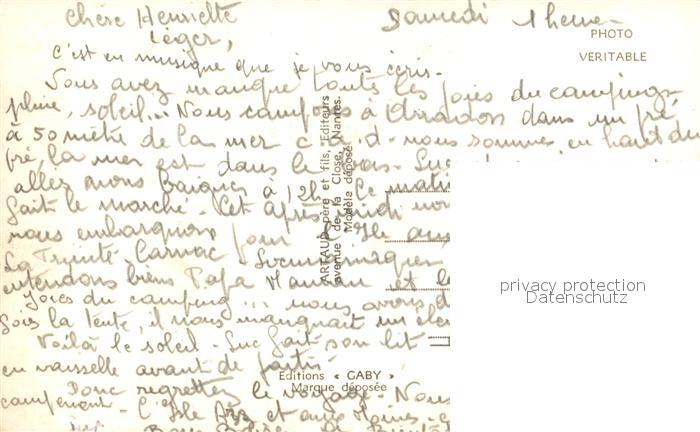 Chère Henriette
Samedi 1 heure
Léger,
PHOTO
VERITABLE
C'est en musique que je vous écris -
Vous avez manqué toutes les joies du camping -
pluie, soleil... Nous campons à Arradon dans un pré,
à 50 mètre de la mer c à d - nous sommes en haut du
pré, la mer est dans le bas - Luc
allez nous baigner à 12h. Ce matin
fait le marché - Cet après midi nous
nous embarquons pour l'Ile aux
La Trinité - Carnac -
entendons bien Papa Maman et les
Joies du camping ... nous avons
sous la tente, il nous manquait un
Voilà le soleil - Luc fait son lit
en vaisselle avant de partir
Donc regrettez le voyage - Nous
campement - L'Isle Arz et aux Moines -
ARTAUD père et fils, Editeurs
avenue de la Close, Nantes.
Modèle déposé
Editions « GABY »
Marque déposée
privacy protection
Datenschutz